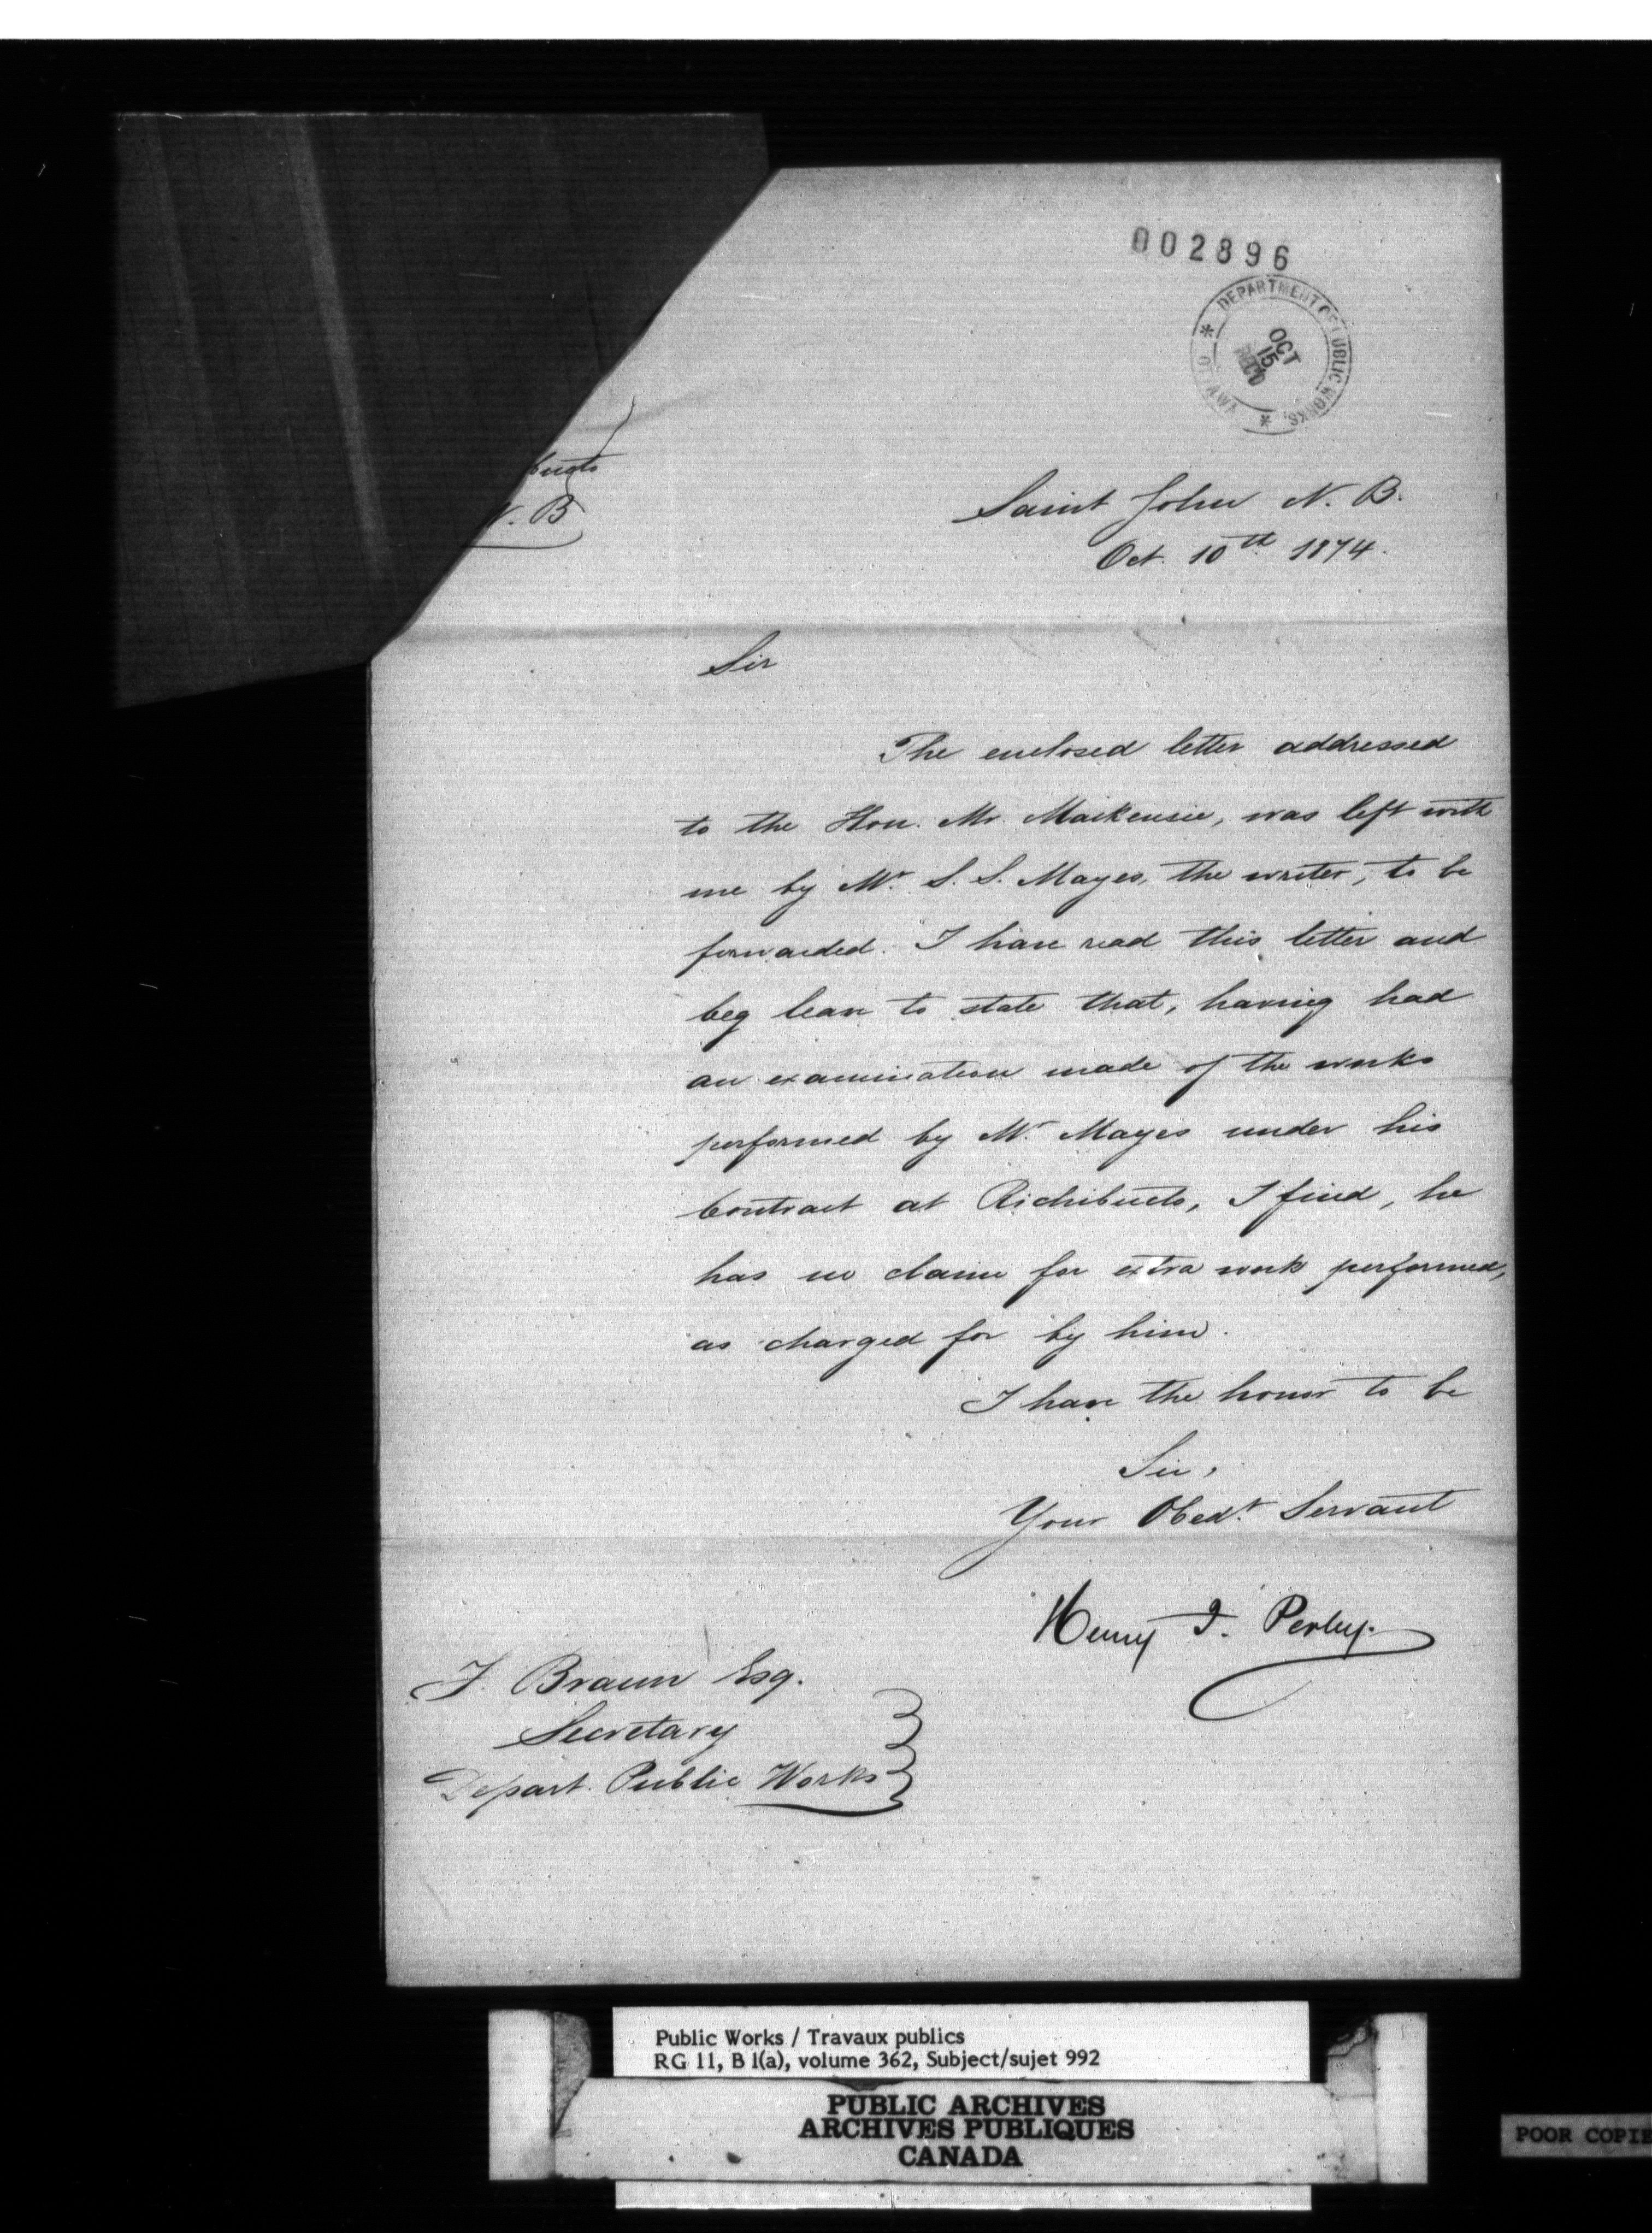 002896
DEPARTMENT OF PUBLIC WORKS.
OCT
15
REC'D
OTTAWA
N. B
Saint John N. B.
Oct. 10th 1874.
Sir
The enclosed letter addressed
to the Hon. Mr. Mackenzie, was left with
me by Mr. S. S. Mayes, the writer, to be
forwarded. I have read this letter and
beg leave to state that, having had
an examination made of the works
performed by Mr. Mayes under his
Contract at Richibucto, I find, he
has no claim for extra work performed,
as charged for by him.
I have the honor to be
Sir,
Your Obedt. Servant
Henry F. Perley.
F. Braun Esq.
Secretary
Depart. Public Works
Public Works / Travaux publics
RG 11, B 1(a), volume 362, Subject/sujet 992
PUBLIC ARCHIVES
ARCHIVES PUBLIQUES
CANADA
POOR COPIE